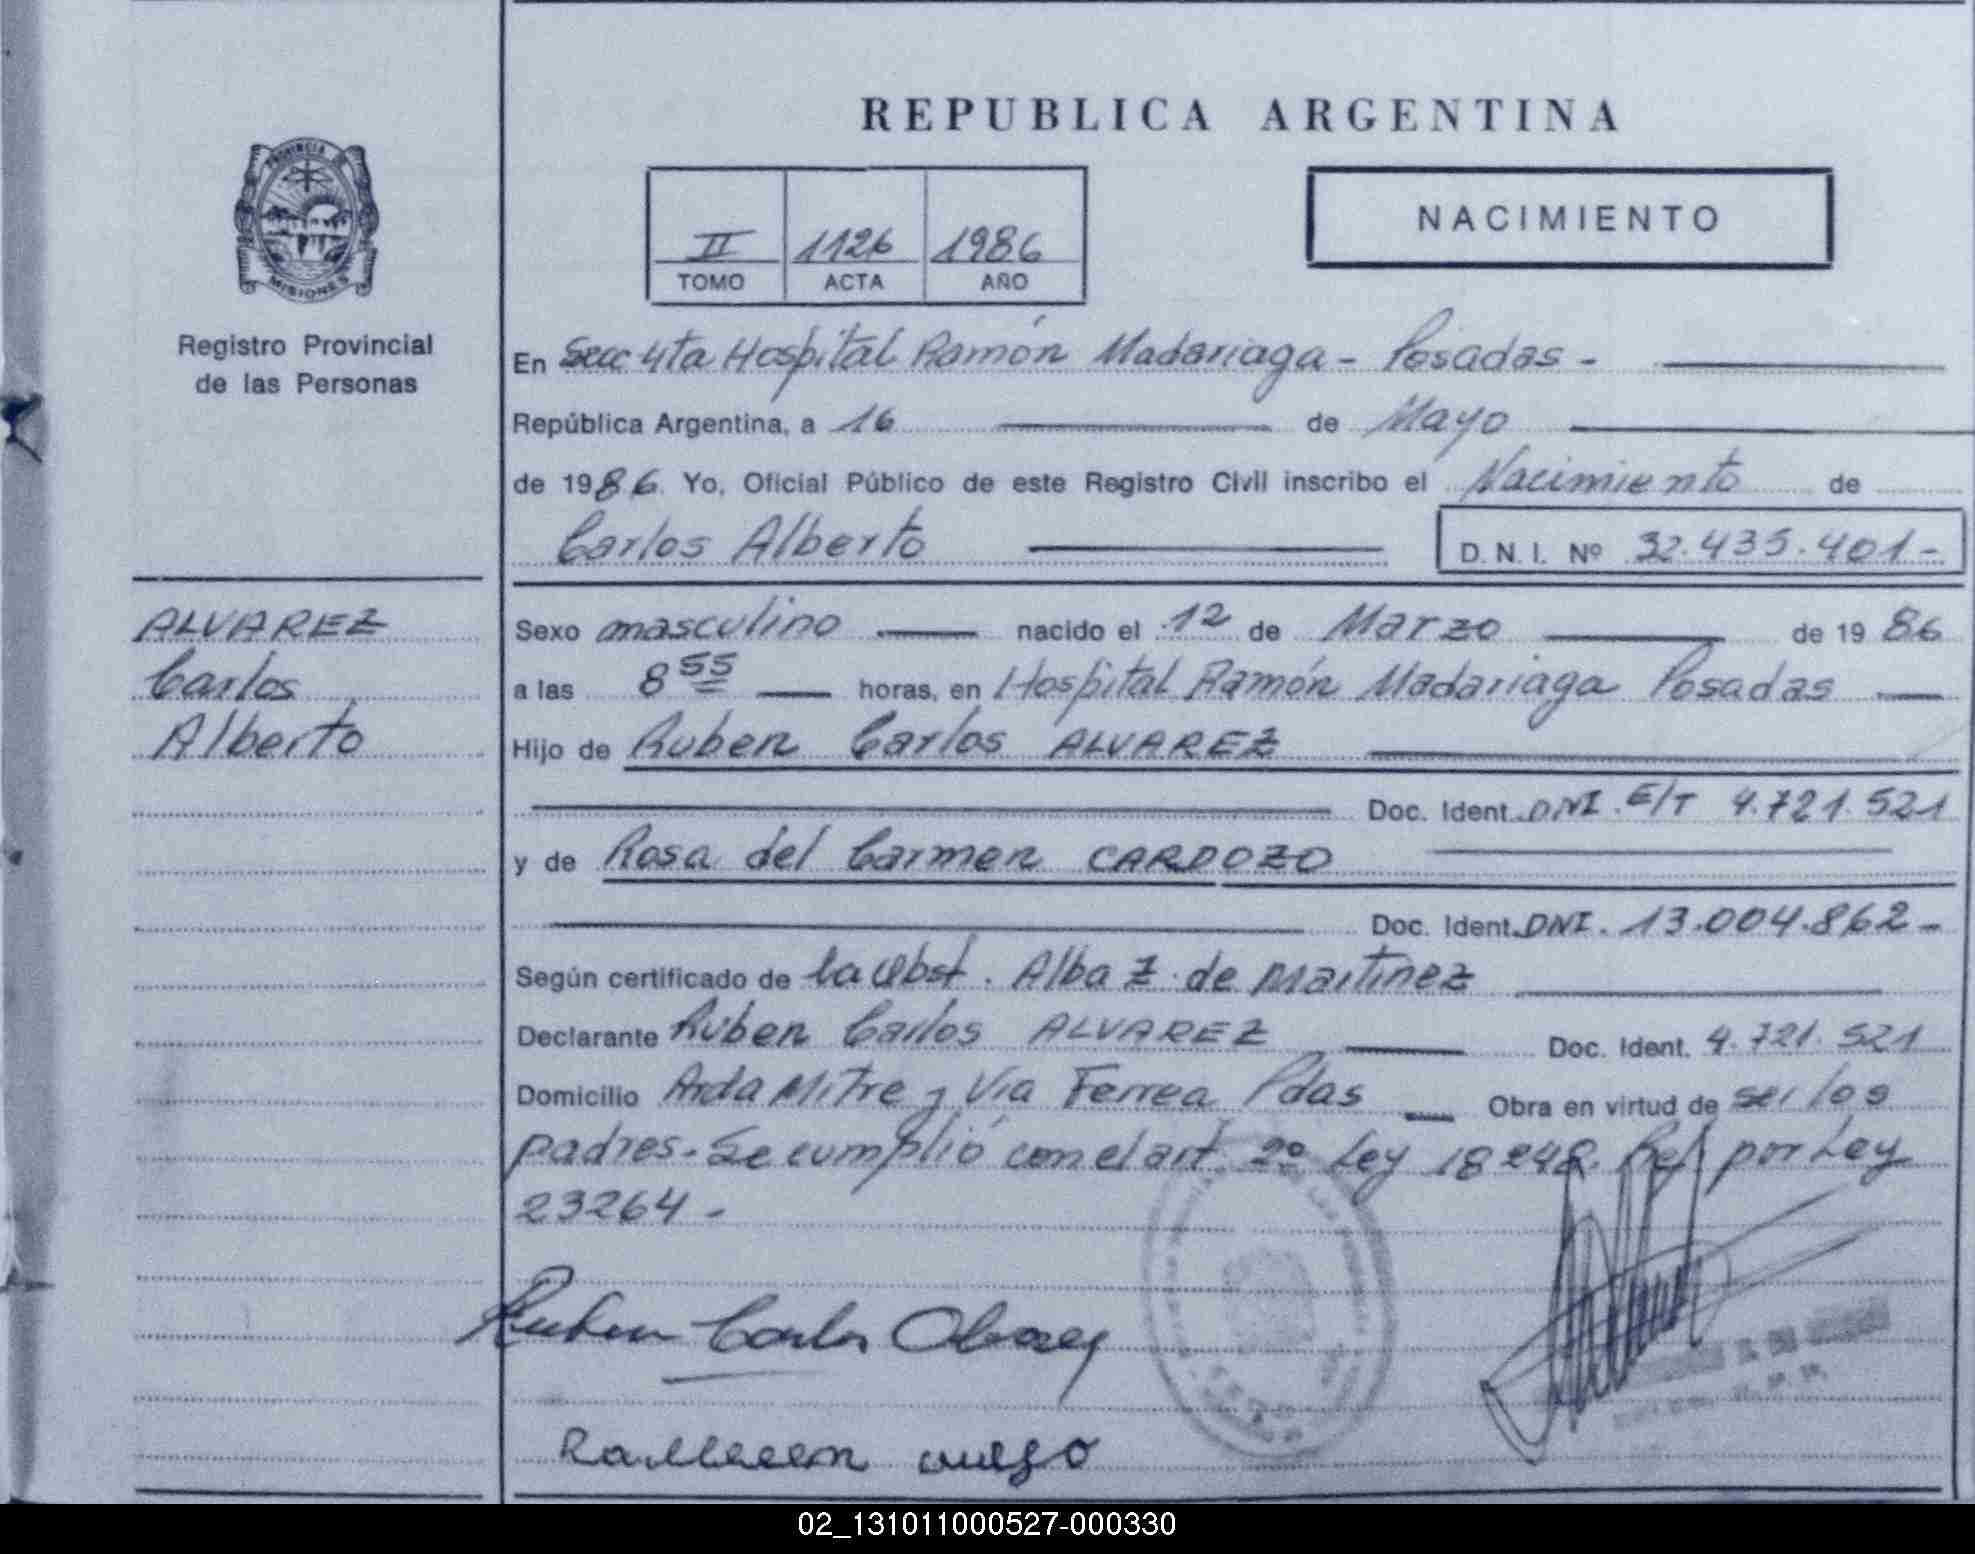 REPUBLICA ARGENTINA
PROVINCIA DE
MISIONES
Registro Provincial
de las Personas
II 1126 1986
TOMO ACTA AÑO
NACIMIENTO
En Secc 4ta Hospital Ramón Madariaga - Posadas -
República Argentina, a 16 de Mayo
de 1986. Yo, Oficial Público de este Registro Civil inscribo el Nacimiento de
Carlos Alberto D. N. I. Nº 32.435.401-
ALVAREZ
Carlos
Alberto
Sexo masculino nacido el 12 de Marzo de 19 86
a las 8 55 horas, en Hospital Ramón Madariaga Posadas
Hijo de Ruben Carlos ALVAREZ
Doc. Ident. DNI. E/T 4.721.521
y de Rosa del Carmen CARDOZO
Doc. Ident. DNI. 13.004.862-
Según certificado de la Obst. Alba Z. de Martinez
Declarante Ruben Carlos ALVAREZ Doc. Ident. 4.721.521
Domicilio Avda Mitre y Via Ferrea Pdas Obra en virtud de ser los
padres. Se cumplió con el art. 2º Ley 18248. Ref por Ley
23264 -
Ruben Carlos Alvarez
02_131011000527-000330